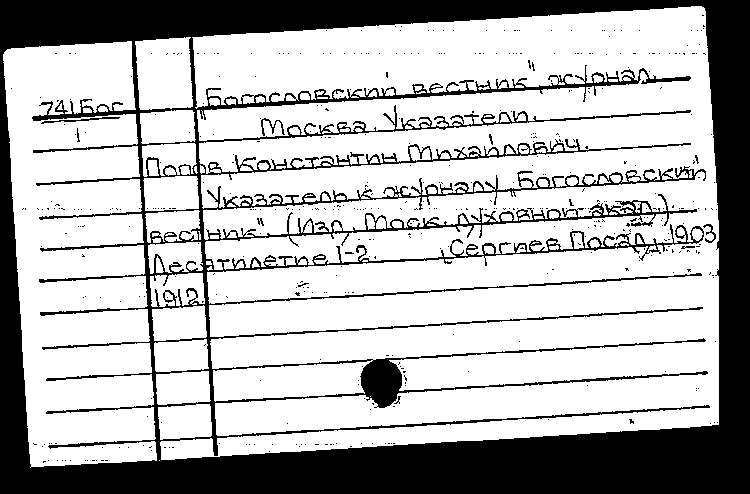 741Бог „Богословский вестник", журнал.
1 Москва. Указатели.
Попов, Константин Михайлович.
Указатель к журналу „Богословский
вестник". (Изд. Моск. духовной акад.).
Десятилетие 1-2. , Сергиев Посад, 1903,
1912.